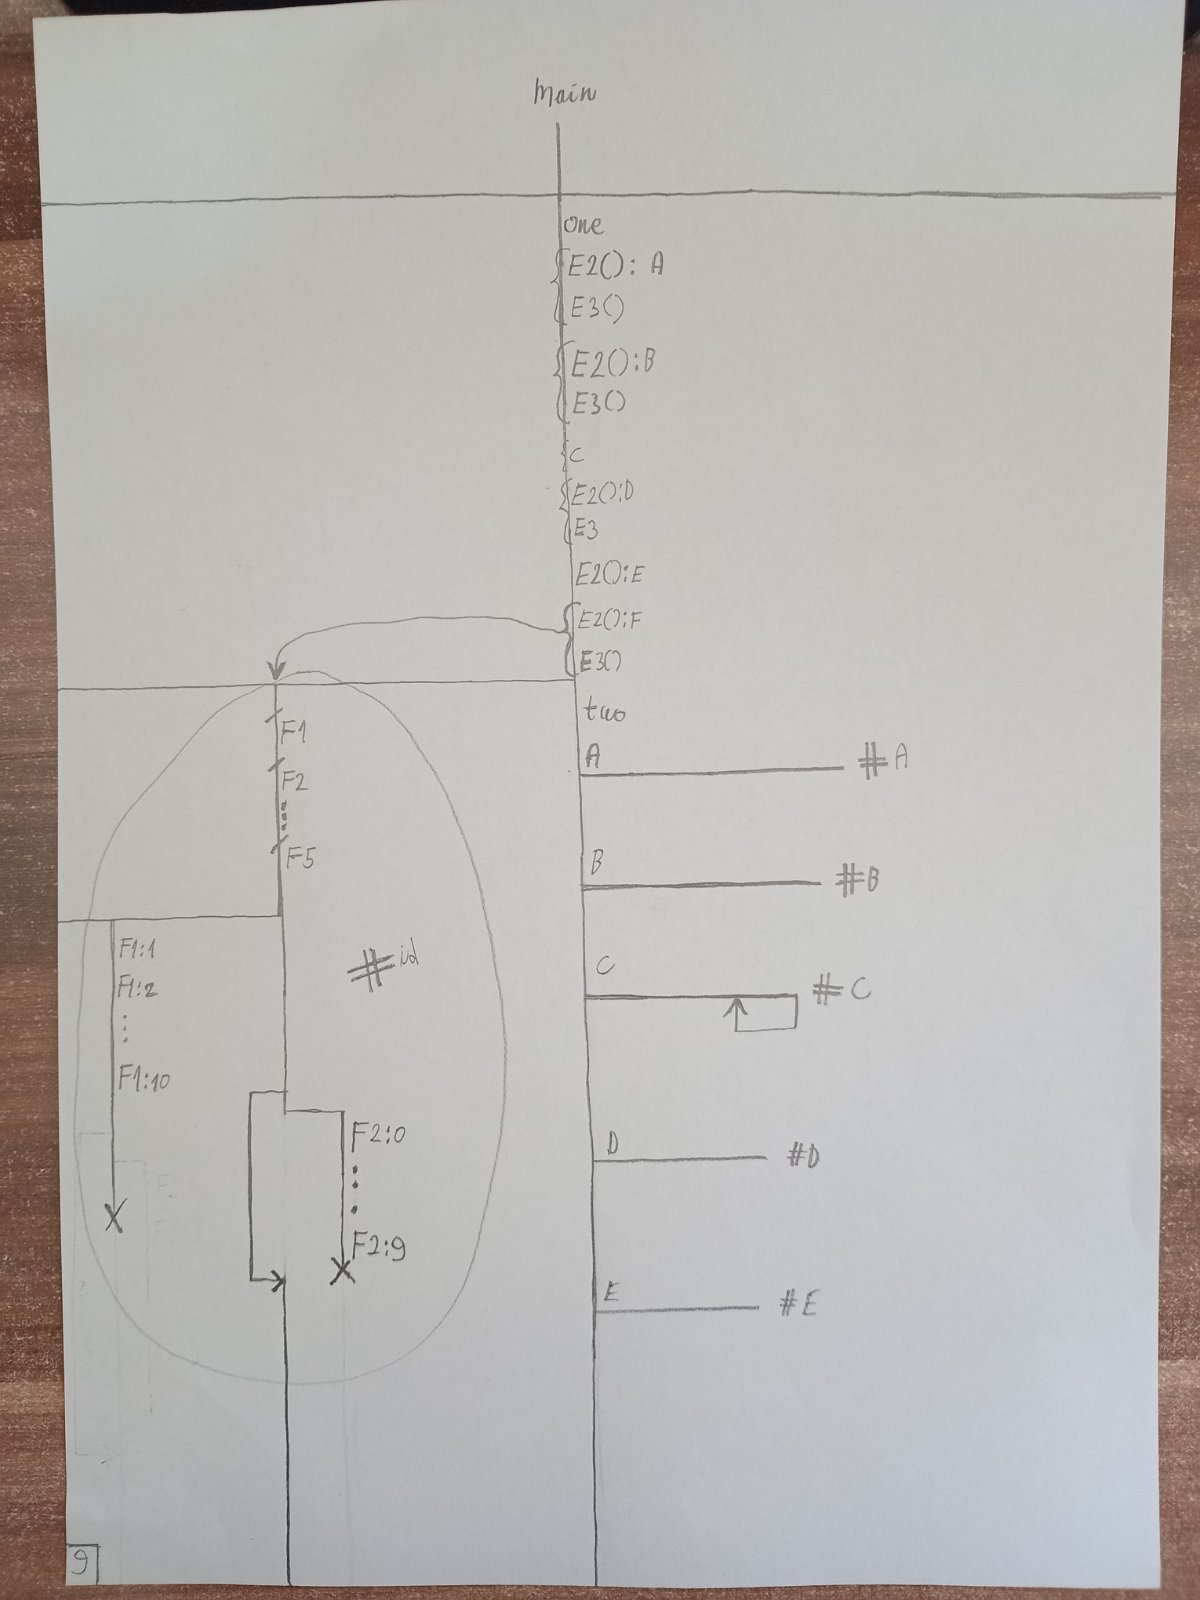 Main
one
E2(): A
E3()
E2():B
E3()
C
E2():D
E3
E2():E
E2():F
E3()
two
A
#A
B
#B
C
#C
D
#D
E
#E
F1
F2
F5
#id
F1:1
F1:2
F1:10
F2:0
F2:9
9